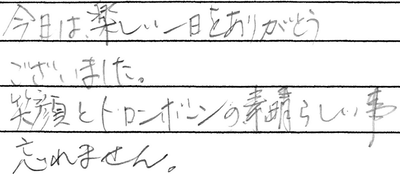 今日は、楽しい一日をありがとう
ございました。
笑顔とトロンボーンの素晴らしい事
忘れません。